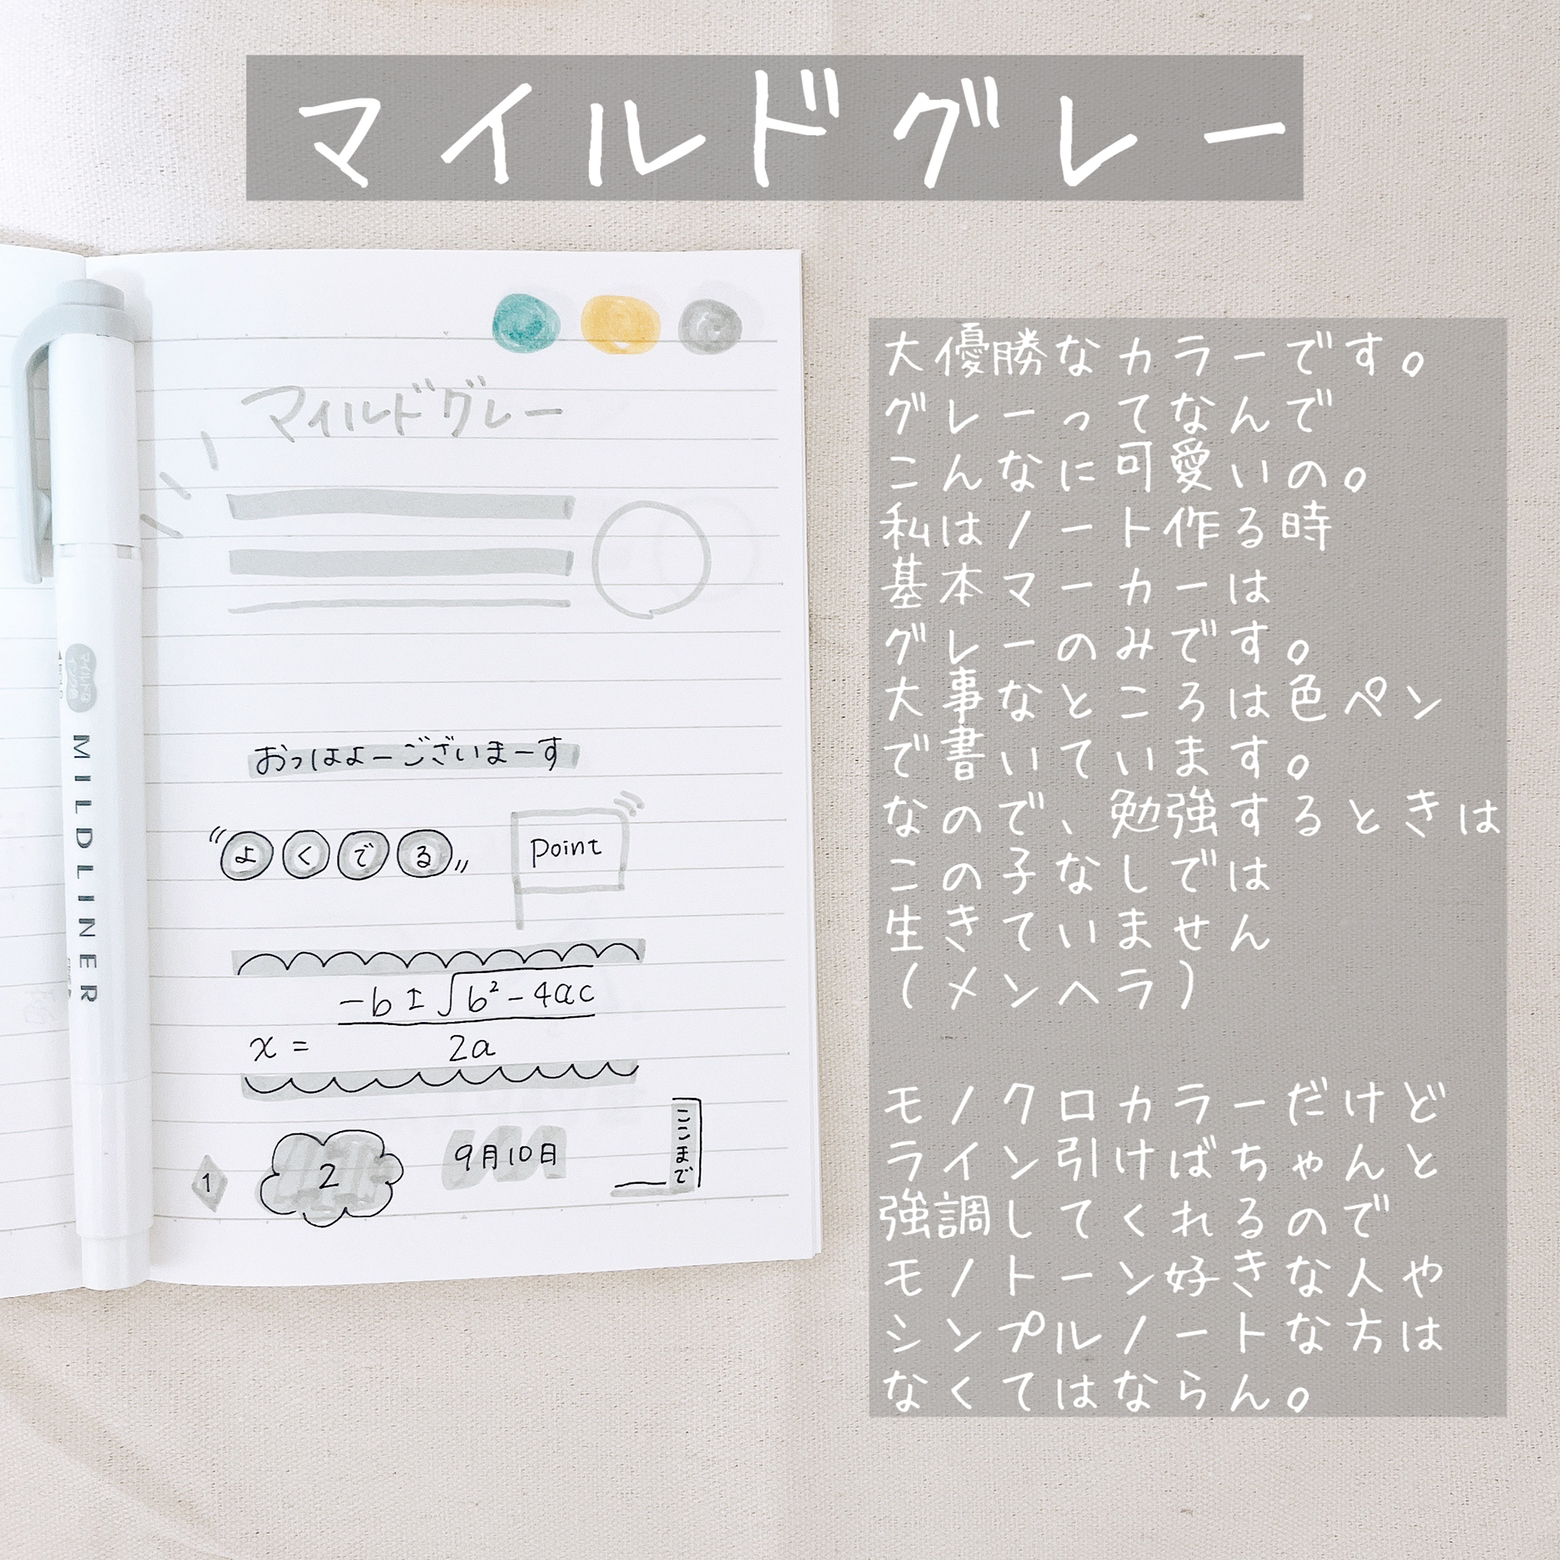 マイルドグレー
マイルドグレー
MILDLINER
おっはよーございまーす
よくでる
Point
x = -b ± √b² - 4ac
2a
1
2
9月10日
ここまで
大優勝なカラーです。
グレーってなんで
こんなに可愛いの。
私はノート作る時
基本マーカーは
グレーのみです。
大事なところは色ペン
で書いています。
なので、勉強するときは
この子なしでは
生きていません
(メンヘラ)
モノクロカラーだけど
ライン引けばちゃんと
強調してくれるので
モノトーン好きな人や
シンプルノートな方は
なくてはならん。